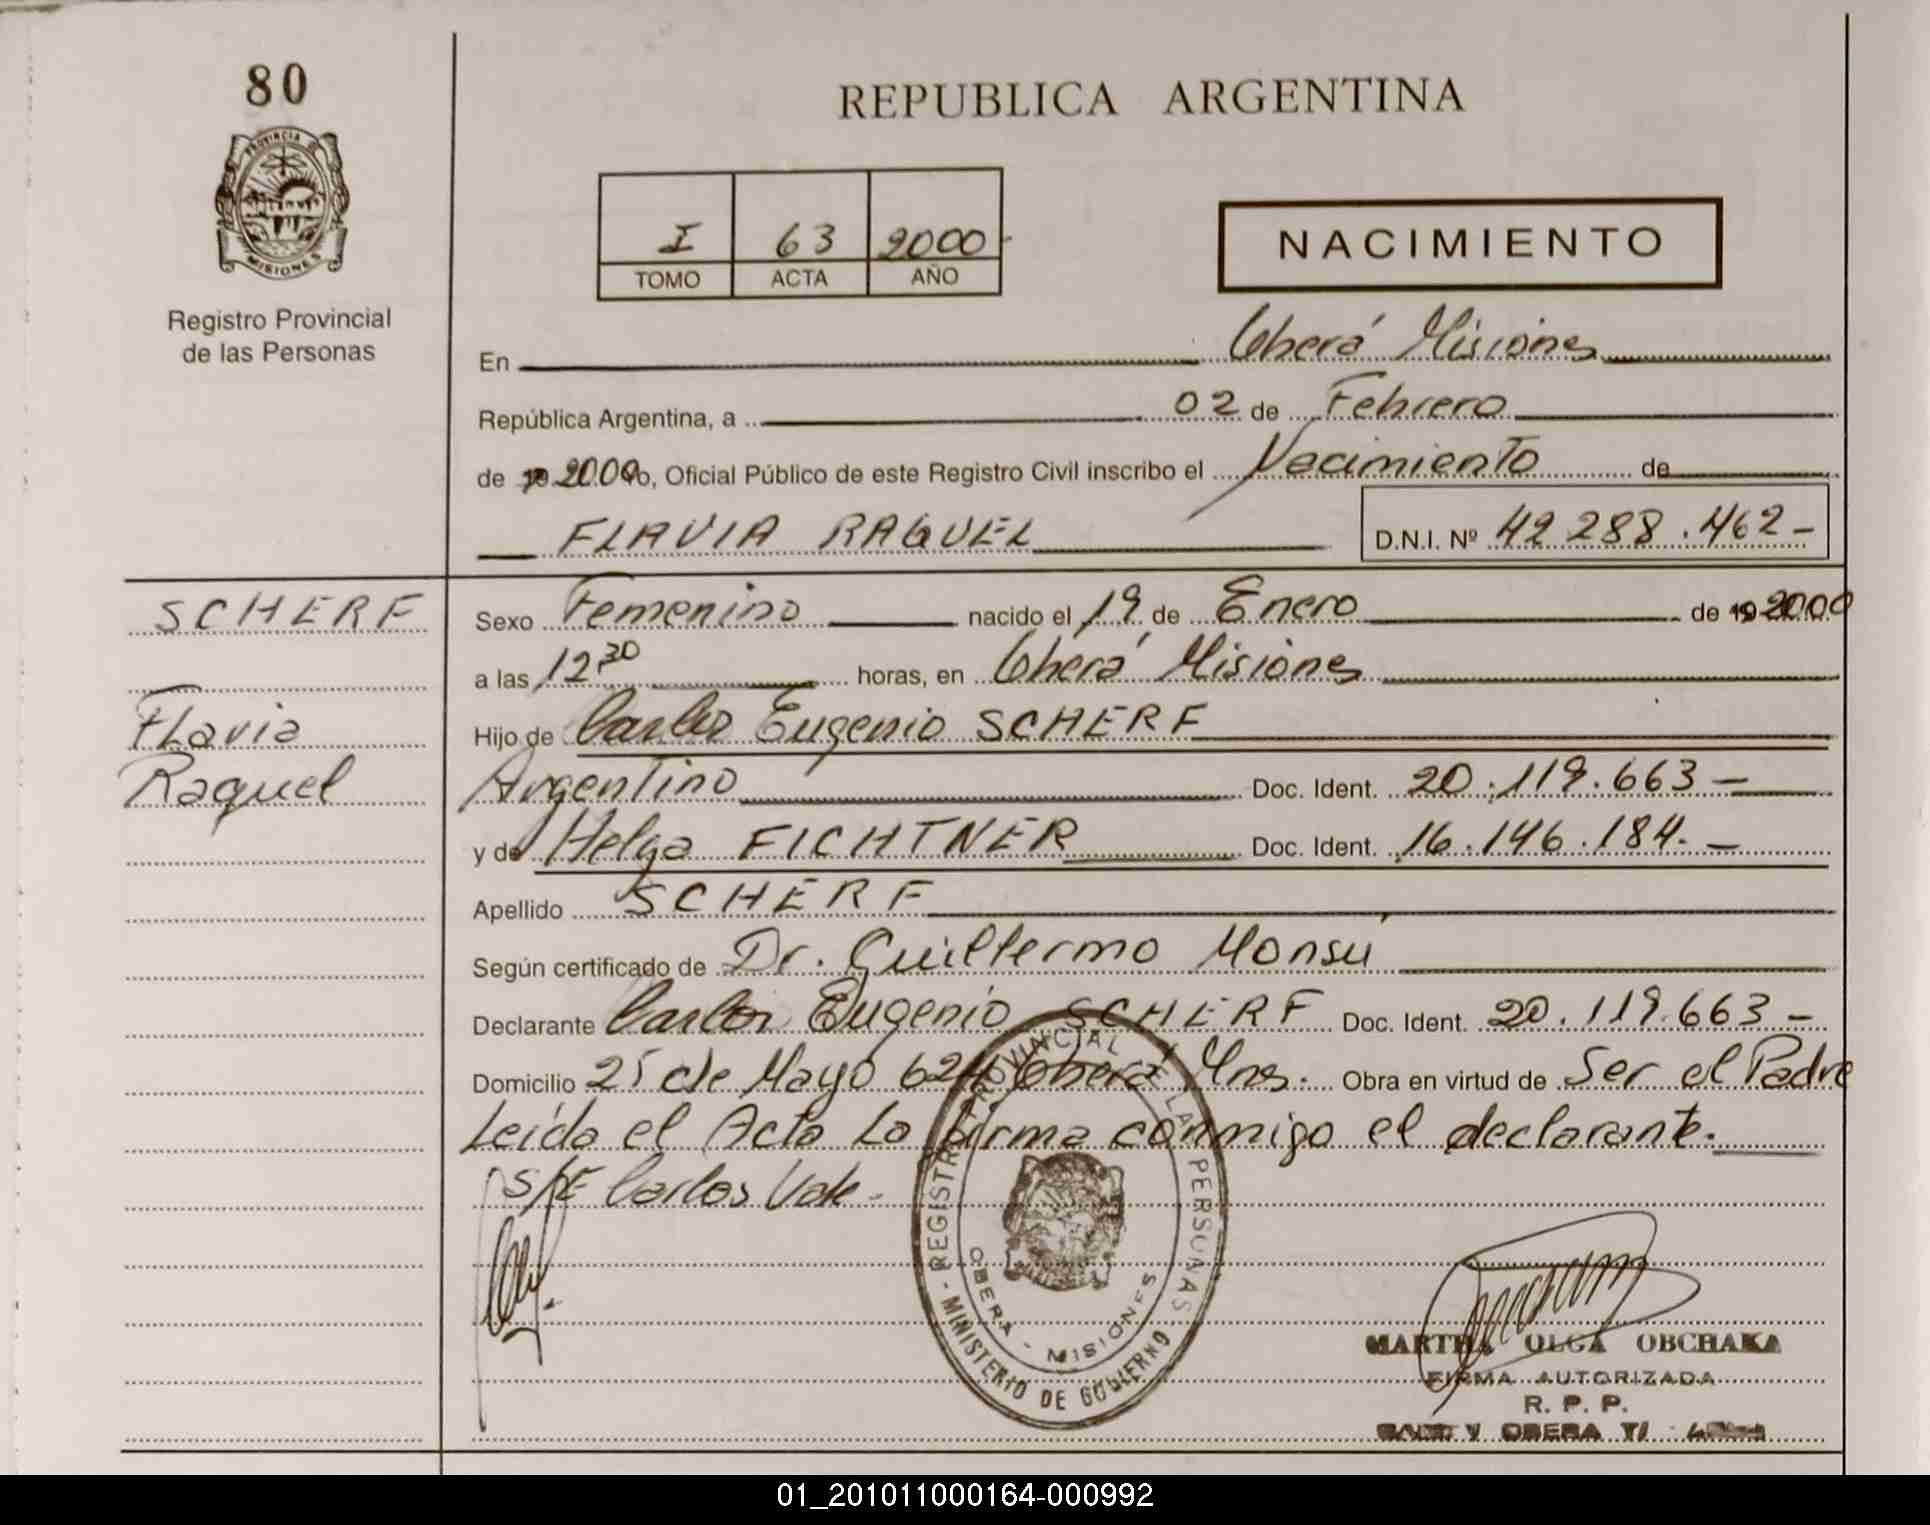 80
REPUBLICA ARGENTINA
PROVINCIA DE
MISIONES
Registro Provincial
de las Personas
I 63 2000
TOMO ACTA AÑO
NACIMIENTO
En Oberá Misiones
República Argentina, a 02 de Febrero
de 2000 yo, Oficial Público de este Registro Civil inscribo el Nacimiento de
FLAVIA RAQUEL D.N.I. Nº 42 288.462-
SCHERF
Flavia
Raquel
Sexo Femenino nacido el 19 de Enero de 19 2000
a las 12 30 horas, en Oberá Misiones
Hijo de Carlos Eugenio SCHERF
Argentino Doc. Ident. 20.119.663-
y de Helga FICHTNER Doc. Ident. 16.146.184.-
Apellido SCHERF
Según certificado de Dr. Guillermo Monsú
Declarante Carlos Eugenio SCHERF Doc. Ident. 20.119.663-
Domicilio 25 de Mayo 624 Oberá Mns. Obra en virtud de Ser el Padre
Leída el Acta La firma conmigo el declarante.
S/E Carlos Vale.
REGISTRO PROVINCIAL DE LAS PERSONAS
MINISTERIO DE GOBIERNO
OBERA - MISIONES
MARTHA OLGA OBCHAKA
FIRMA AUTORIZADA
R. P. P.
OBERA
01_201011000164-000992